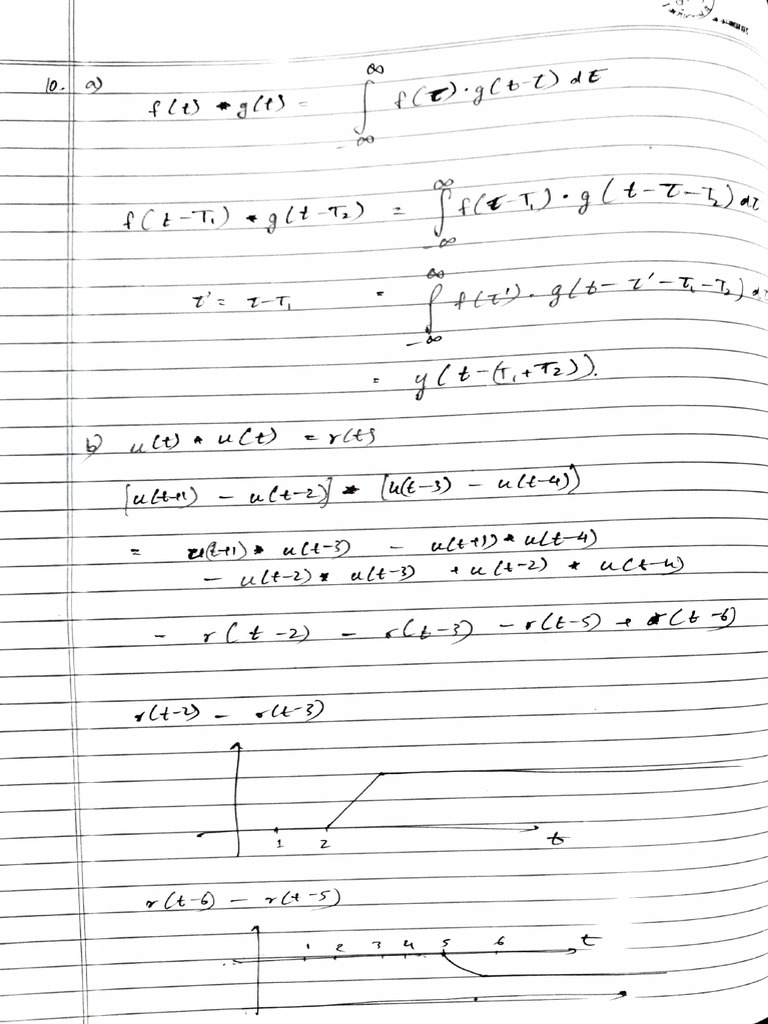 10. a)
f(t) * g(t) = ∫_{-∞}^{∞} f(τ)·g(t-τ) dτ
f(t-T₁) * g(t-T₂) = ∫_{-∞}^{∞} f(τ-T₁)·g(t-τ-T₂) dτ
τ' = τ-T₁ = ∫_{-∞}^{∞} f(τ')·g(t-τ'-T₁-T₂) dτ
= y(t-(T₁+T₂)).
b) u(t) * u(t) = r(t)
[u(t+1) - u(t-2)] * [u(t-3) - u(t-4)]
= u(t+1) * u(t-3) - u(t+1) * u(t-4)
- u(t-2) * u(t-3) + u(t-2) * u(t-4)
= r(t-2) - r(t-3) - r(t-5) + r(t-6)
r(t-2) - r(t-3)
1 2 t
r(t-6) - r(t-5)
1 2 3 4 5 6 t